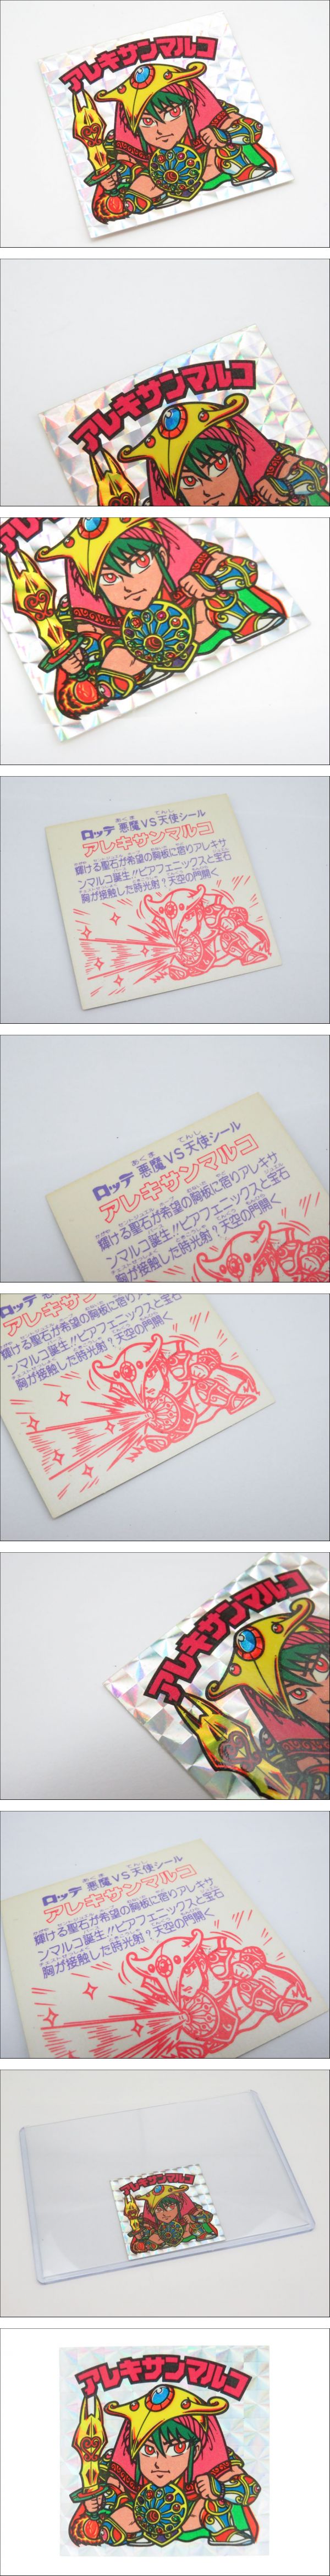 アレキサンマルコ
アレキサンマルコ
アレ
あくま てんし
ロッテ 悪魔VS天使シール
アレキサンマルコ
輝ける聖石が希望の胸板に宿りアレキサ
ンマルコ誕生!!ピアフェニックスと宝石
胸が接触した時光射?天空の門開く
あくま てんし
ロッテ 悪魔VS天使シール
アレキサンマルコ
輝ける聖石が希望の胸板に宿りアレキサ
ンマルコ誕生!!ピアフェニックスと宝石
胸が接触した時光射?天空の門開く
ロッテ
アレキサン
輝ける聖石が希望の胸板に宿りアレキサ
ンマルコ誕生!!ピアフェニックスと宝石
胸が接触した時光射?天空の門開く
アレキサンマルコ
あくま てんし
ロッテ 悪魔VS天使シール
アレキサンマルコ
輝ける聖石が希望の胸板に宿りアレキサ
ンマルコ誕生!!ピアフェニックスと宝石
胸が接触した時光射?天空の門開く
アレキサンマルコ
アレキサンマルコ